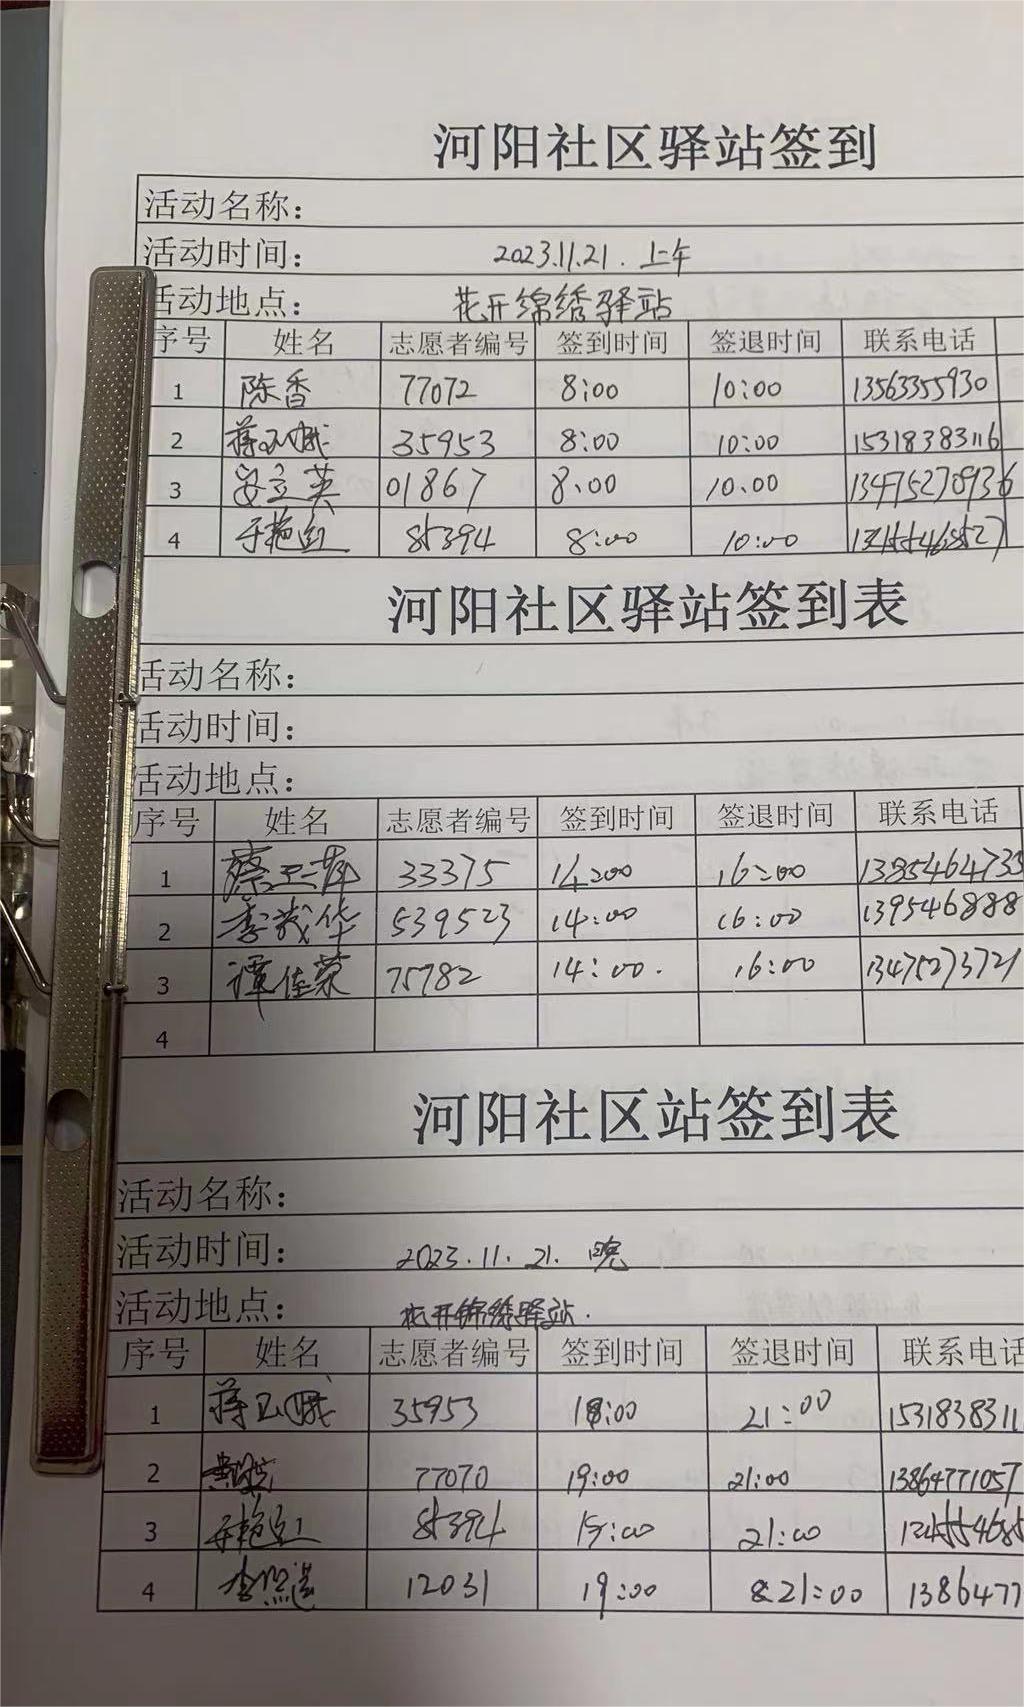 河阳社区驿站签到
活动名称：
活动时间： 2023.11.21. 上午
活动地点： 花开绵绣驿站
序号 姓名 志愿者编号 签到时间 签退时间 联系电话
1 陈香 77072 8:00 10:00 13563355930
2 蒋玉娥 35953 8:00 10:00 15318383116
3 安立英 01867 8:00 10:00 13475278936
4 于艳红 85394 8:00 10:00
河阳社区驿站签到表
活动名称：
活动时间：
活动地点：
序号 姓名 志愿者编号 签到时间 签退时间 联系电话
1 蔡卫萍 33375 14:00 16:00 1385464735
2 李茂华 539523 14:00 16:00 139546888
3 谭佳荣 75782 14:00. 16:00 13475273721
4
河阳社区站签到表
活动名称：
活动时间： 2023.11.21. 晚
活动地点： 花开锦绣驿站.
序号 姓名 志愿者编号 签到时间 签退时间 联系电话
1 蒋玉娥 35953 18:00 21:00 1531838311
2 77070 19:00 21:00 13864771057
3 于艳红 85394 19:00 21:00
4 12031 19:00 21:00 1386477